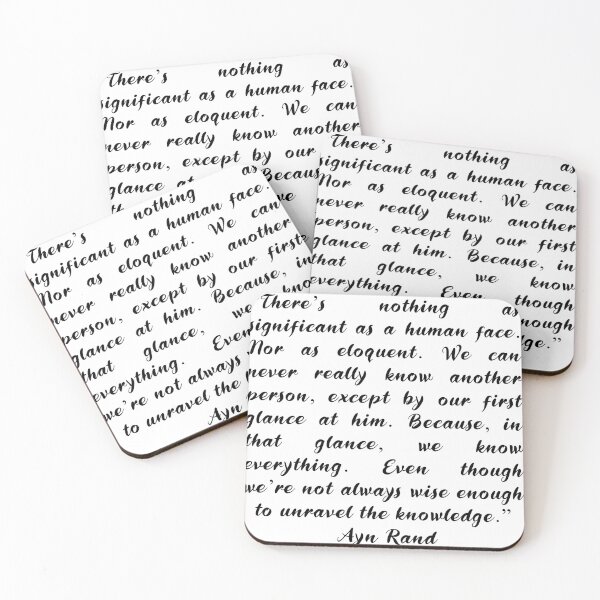 There's nothing as
significant as a human face.
Nor as eloquent. We can
never really know another
person, except by our
glance at
we
There's nothing as
significant as a human face.
Nor as eloquent. We can
never really know another
person, except by our first
glance at him. Because, in
that glance, we know
everything. Even though
There's nothing as
significant as a human face.
Nor as eloquent. We can
never really know another
person, except by our first
glance at him. Because, in
that glance, we
everything. Even
we're not always
to unravel the
Ayn
There's nothing as
significant as a human face.
Nor as eloquent. We can
never really know another
person, except by our first
glance at him. Because, in
that glance, we know
everything. Even though
we're not always wise enough
to unravel the knowledge.”
Ayn Rand